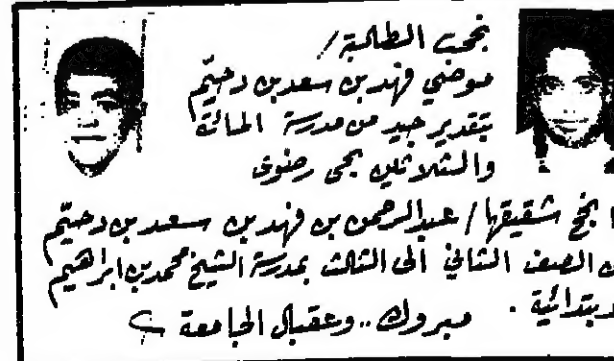 نجحت الطالبة /
موضي فهد بن سعد بن دحيّم
بتقدير جيد من مدرسة المائة
والثلاثين بحي رضوى
نجح شقيقها / عبدالرحمن بن فهد بن سعد بن دحيّم
الصف الثاني الى الثالث بمدرسة الشيخ محمد بن ابراهيم
مبروك .. وعقبال الجامعة